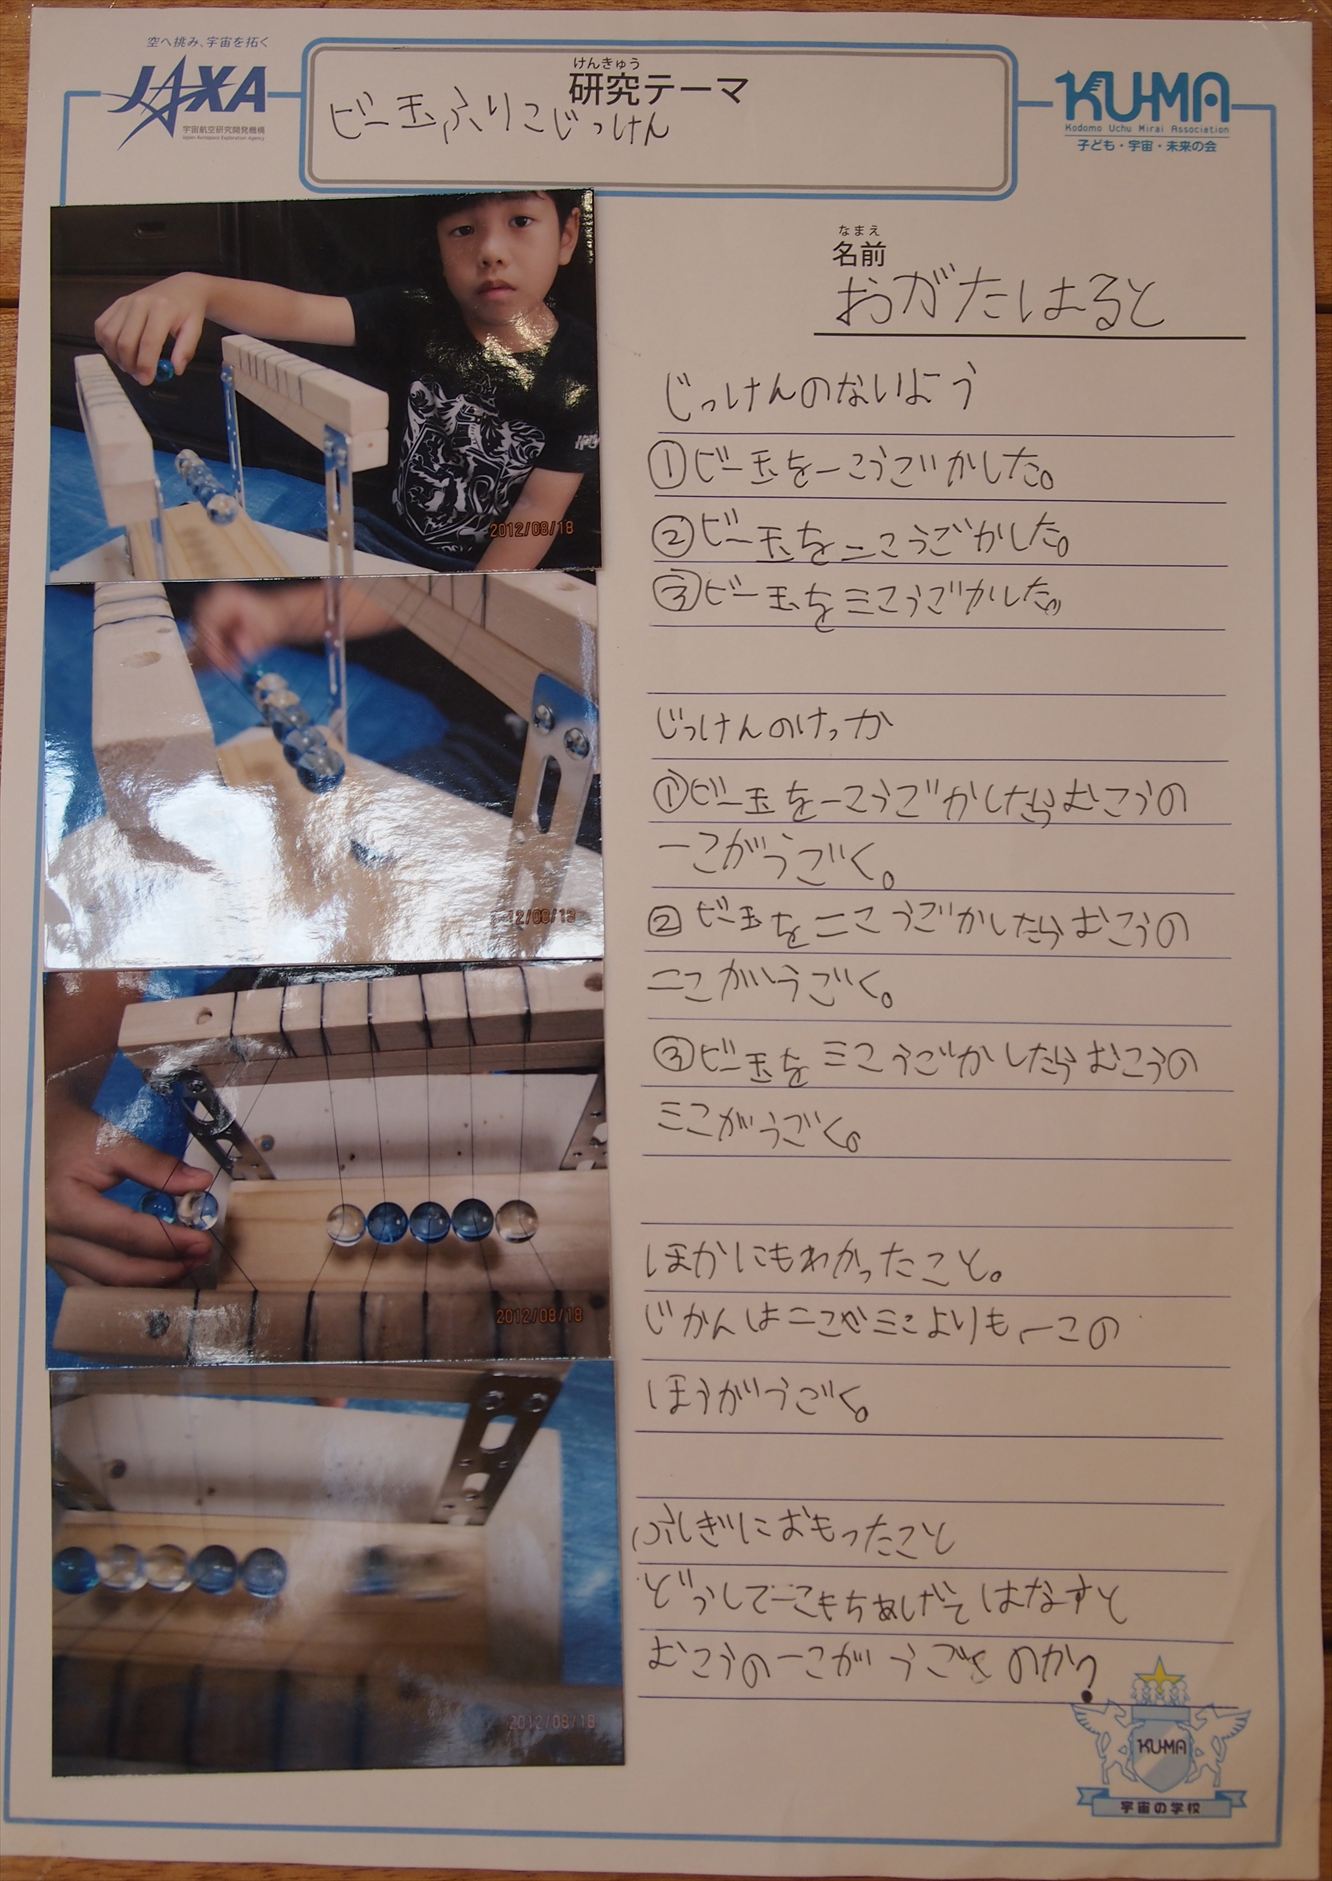 空へ挑み、宇宙を拓く
JAXA
宇宙航空研究開発機構
Japan Aerospace Exploration Agency
けんきゅう
研究テーマ
ビー玉ふりこじっけん
KU-MA
Kodomo Uchu Mirai Association
子ども・宇宙・未来の会
なまえ
名前
おがたはると
じっけんのないよう
①ビー玉を一こうごかした。
②ビー玉を二こうごかした。
③ビー玉を三こうごかした。
じっけんのけっか
①ビー玉を一こうごかしたらむこうの
一こがうごく。
②ビー玉を二こうごかしたらむこうの
二こがうごく。
③ビー玉を三こうごかしたらむこうの
三こがうごく。
ほかにもわかったこと。
じかんは二こや三こよりも一この
ほうがうごく。
ふしぎにおもったこと
どうして一こもちあげてはなすと
むこうの一こがうごくのか?
2012/08/18
12/08/18
2012/08/18
2012/08/18
KU-MA
宇宙の学校